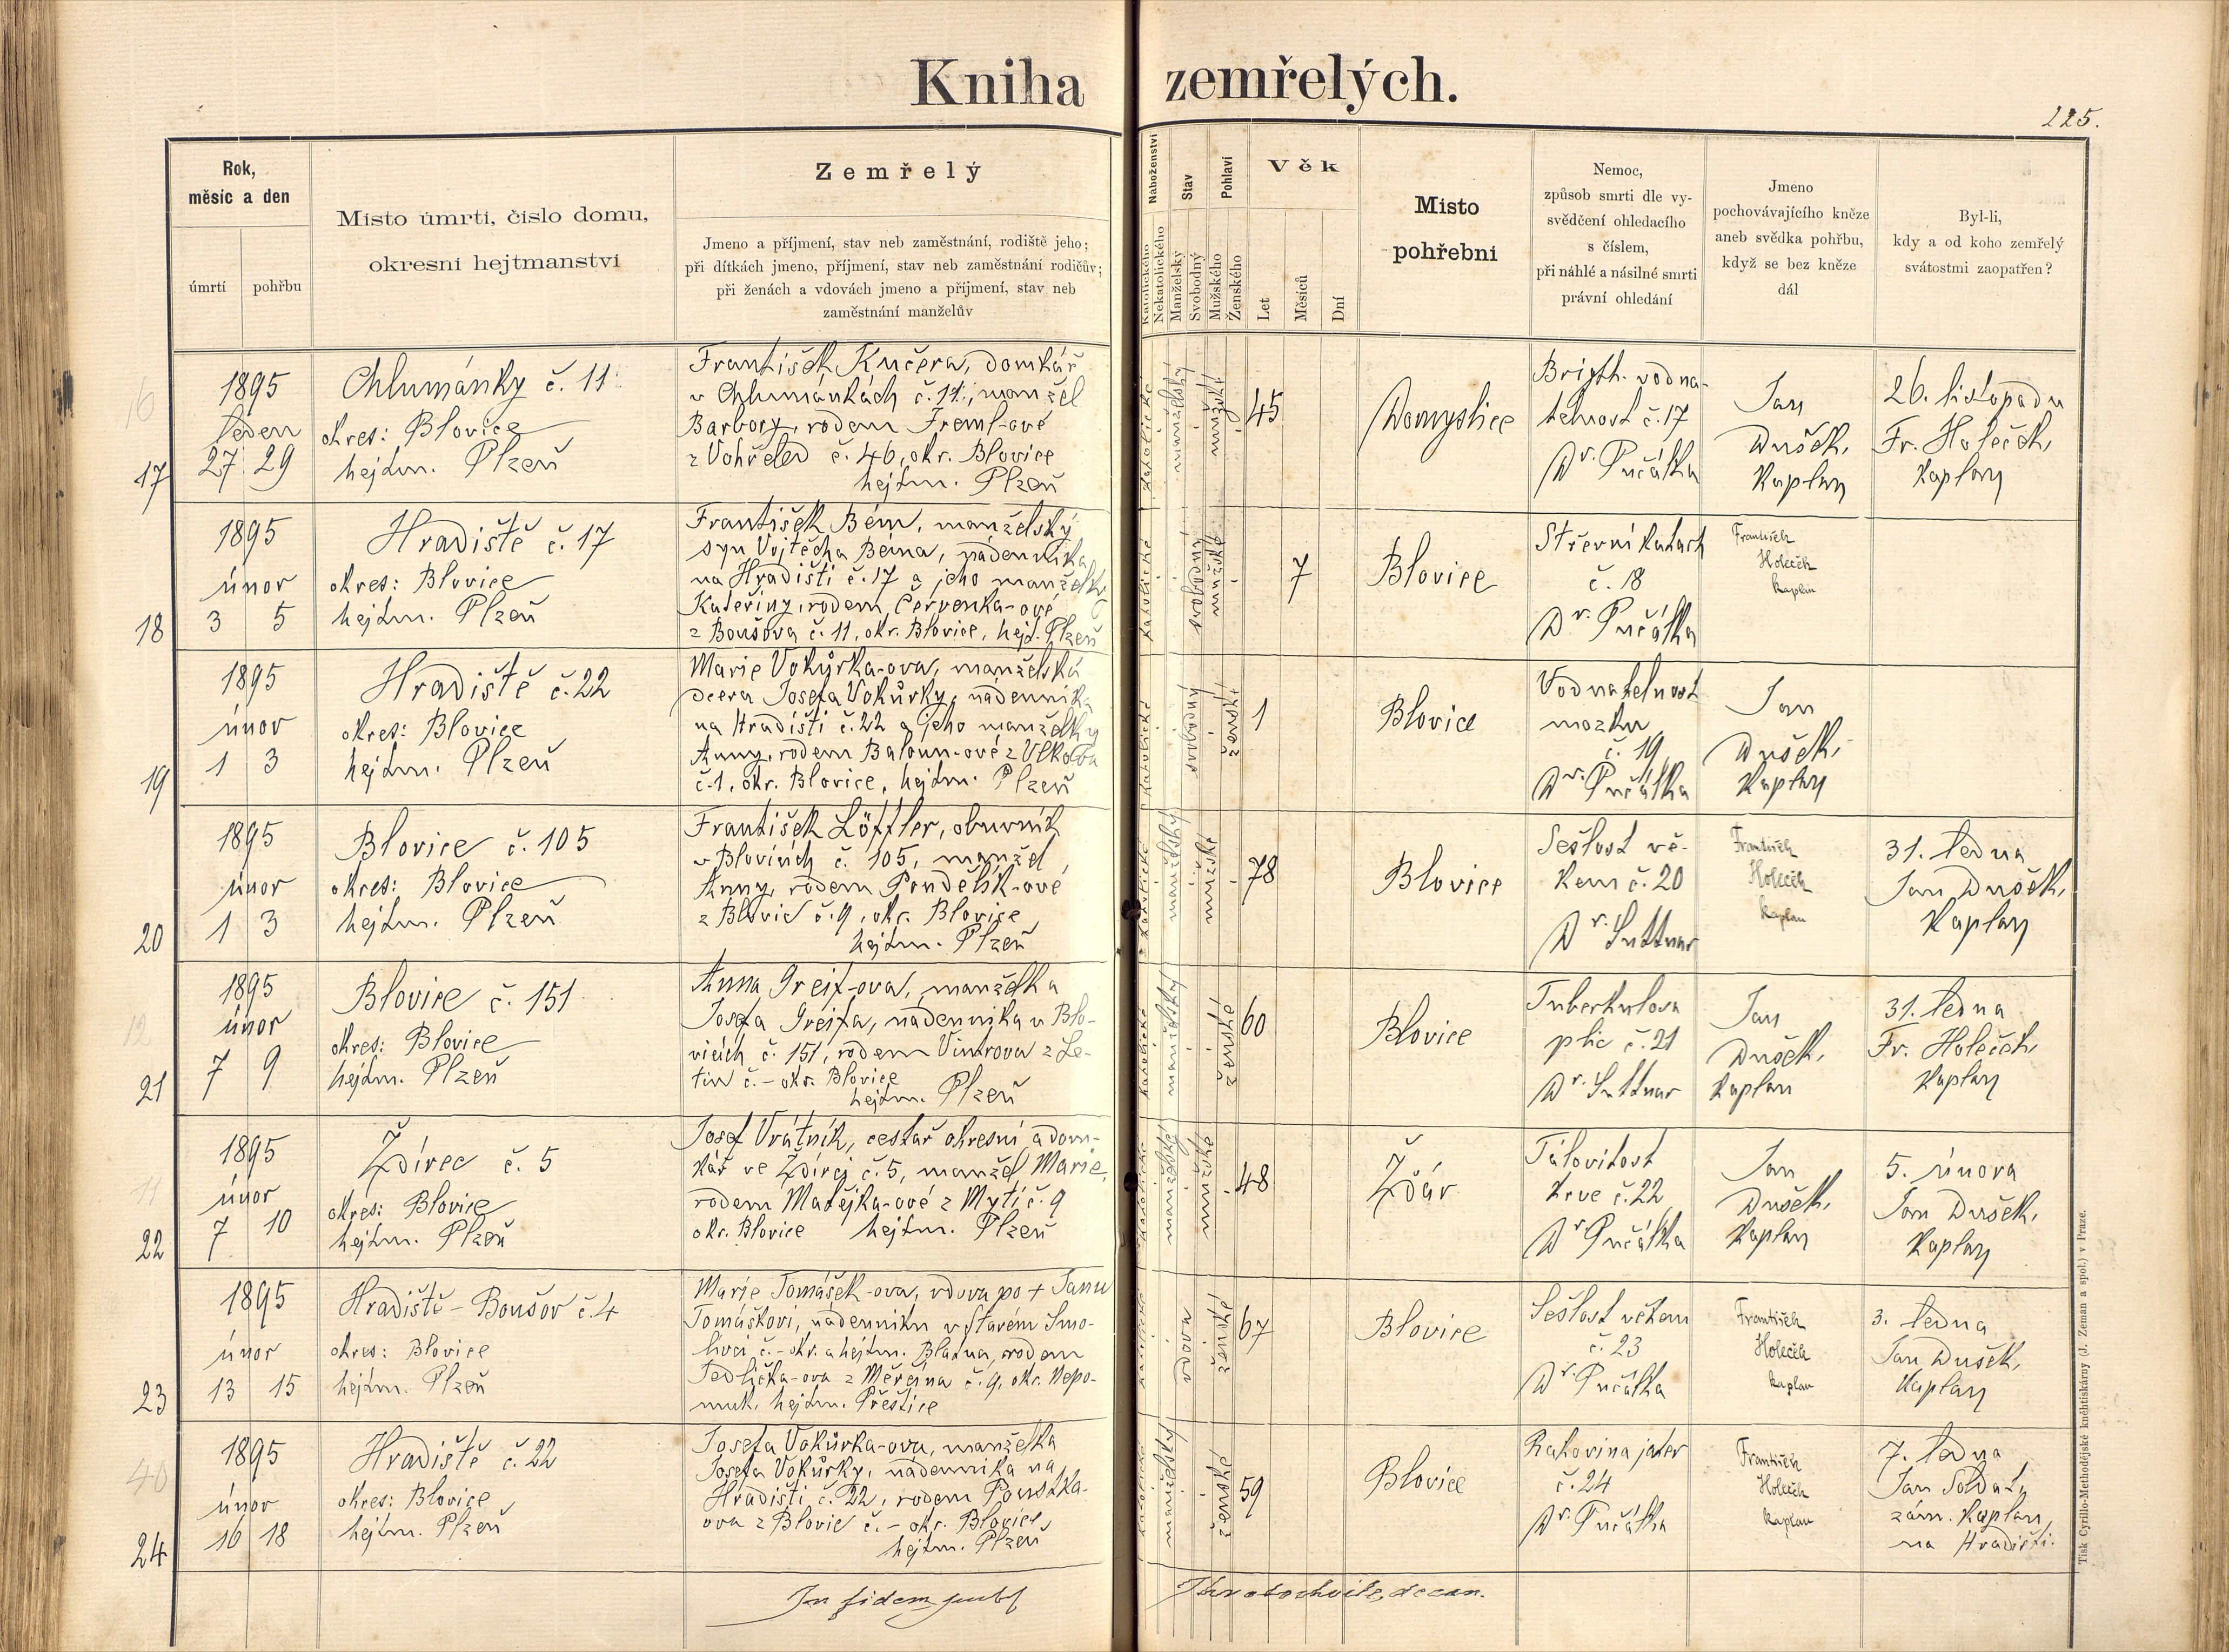 Kniha zemřelých.
225.
Rok,
měsíc a den
úmrtí
pohřbu
Místo úmrtí, číslo domu,
okresní hejtmanství
Zemřelý
Jmeno a příjmení, stav neb zaměstnání, rodiště jeho;
při dítkách jmeno, příjmení, stav neb zaměstnání rodičův;
při ženách a vdovách jmeno a příjmení, stav neb
zaměstnání manželův
Náboženství
Katolického
Nekatolického
Stav
Manželský
Svobodný
Pohlaví
Mužského
Ženského
Věk
Let
Měsíců
Dní
Místo
pohřební
Nemoc,
způsob smrti dle vy-
svědčení ohledacího
s číslem,
při náhlé a násilné smrti
právní ohledání
Jmeno
pochovávajícího kněze
aneb svědka pohřbu,
když se bez kněze
dál
Byl-li,
kdy a od koho zemřelý
svátostmi zaopatřen?
16
17
1895
leden
27 29
Chlumánky č. 11
okres: Blovice
hejtm. Plzeň
František Kučera, domkář
v Chlumánkách č. 11, manžel
Barbory, rodem Freml-ové
z Vohřeled č. 46, okr. Blovice
hejtm. Plzeň
katolické
manželský
mužské
45
Domyslice
Brigth. vodna-
telnost č. 17
Dr. Pučálka
Jan
Dušek,
Kaplan
26. listopadu
Fr. Holeček,
Kaplan
18
1895
únor
3 5
Hradiště č. 17
okres: Blovice
hejtm. Plzeň
František Bém, manželský
syn Vojtěcha Béma, nádenníka
na Hradišti č. 17 a jeho manželky
Kateřiny, rodem Červenka-ové
z Boušova č. 11, okr. Blovice, hejt. Plzeň
katolické
svobodný
mužské
7
Blovice
Střevní katarh
č. 18
Dr. Pučálka
František
Holeček
kaplan
19
1895
únor
1 3
Hradiště č. 22
okres: Blovice
hejtm. Plzeň
Marie Vokůrka-ova, manželská
dcera Josefa Vokůrky, nádenníka
na Hradišti č. 22 a jeho manželky
Anny, rodem Baloun-ové z Vlkova
č. 1, okr. Blovice, hejtm. Plzeň
katolické
svobodný
ženské
1
Blovice
Vodnatelnost
mozku
č. 19
Dr. Pučálka
Jan
Dušek,
Kaplan
20
1895
únor
1 3
Blovice č. 105
okres: Blovice
hejtm. Plzeň
František Löffler, obuvník
v Blovicích č. 105, manžel
Anny, rodem Pondělík-ové
z Blovic č. 9, okr. Blovice
hejtm. Plzeň
katolické
manželský
mužské
78
Blovice
Sešlost vě-
kem č. 20
Dr. Suttnar
František
Holeček
kaplan
31. ledna
Jan Dušek,
Kaplan
12
21
1895
únor
7 9
Blovice č. 151
okres: Blovice
hejtm. Plzeň
Anna Grejf-ova, manželka
Josefa Grejfa, nádenníka v Blo-
vicích č. 151, rodem Vintrova z Le-
tin č. - okr. Blovice
hejtm. Plzeň
katolické
manželský
ženské
60
Blovice
Tuberkulosa
plic č. 21
Dr. Suttnar
Jan
Dušek,
Kaplan
31. ledna
Fr. Holeček,
Kaplan
11
22
1895
únor
7 10
Ždírec č. 5
okres: Blovice
hejtm. Plzeň
Josef Vrátník, cestář okresní a dom-
kář ve Ždírci č. 5, manžel Marie,
rodem Matějka-ové z Mytí č. 9
okr. Blovice hejtm. Plzeň
katolické
manželské
mužské
48
Ždár
Tálovitost
krve č. 22
Dr. Pučálka
Jan
Dušek,
Kaplan
5. února
Jan Dušek,
Kaplan
23
1895
únor
13 15
Hradiště - Boušov č. 4
okres: Blovice
hejtm. Plzeň
Marie Tomášek-ova, vdova po + Janu
Tomáškovi, nádenníku v Starém Smo-
livci č. - okr. a hejtm. Blatna, rodem
Jedlička-ova z Měrčína č. 9, okr. Nepo-
muk, hejtm. Přeštice
katolické
vdova
ženské
67
Blovice
Sešlost věkem
č. 23
Dr. Pučálka
František
Holeček
kaplan
3. ledna
Jan Dušek,
Kaplan
40
24
1895
únor
16 18
Hradiště č. 22
okres: Blovice
hejtm. Plzeň
Josefa Vokůrka-ova, manželka
Josefa Vokůrky, nádenníka na
Hradišti č. 22, rodem
ova z Blovic č. - okr. Blovice
hejtm. Plzeň
katolické
manželský
ženské
59
Blovice
Rakovina jater
č. 24
Dr. Pučálka
František
Holeček
kaplan
7. ledna
Jan Soldát,
zám. kaplan
na Hradišti.
In fidem publ
decan.
Tisk Cyrillo-Methodějské kněhtiskárny (J. Zeman a spol.) v Praze.